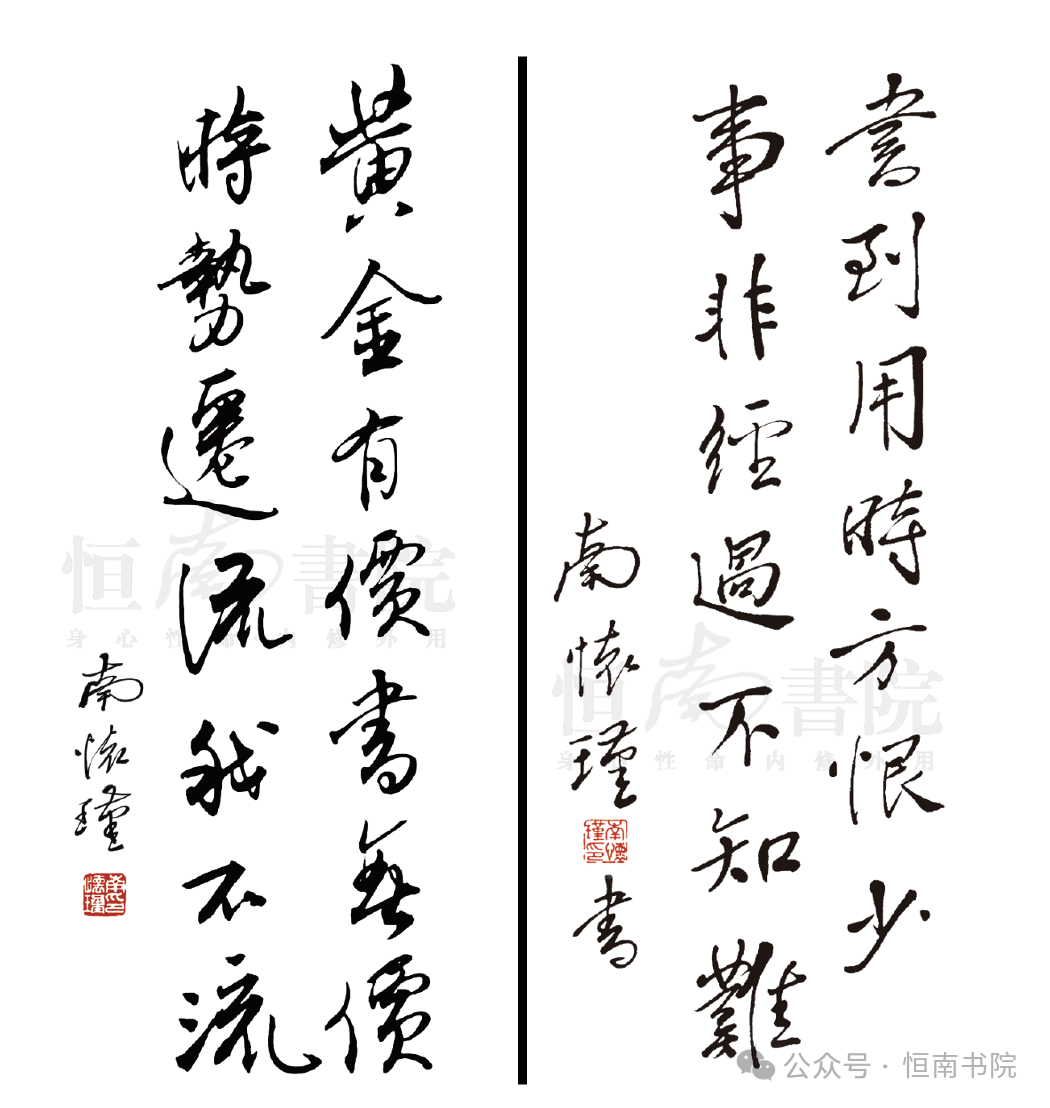 書到用時方恨少
事非經過不知難
南懷瑾
南懷瑾印
書
黃金有價書無價
時勢遷流我不流
南懷瑾
南懷瑾印
恒南書院
身心性命 内修外用
恒南書院
身心性命 内修外用
公众号 · 恒南书院